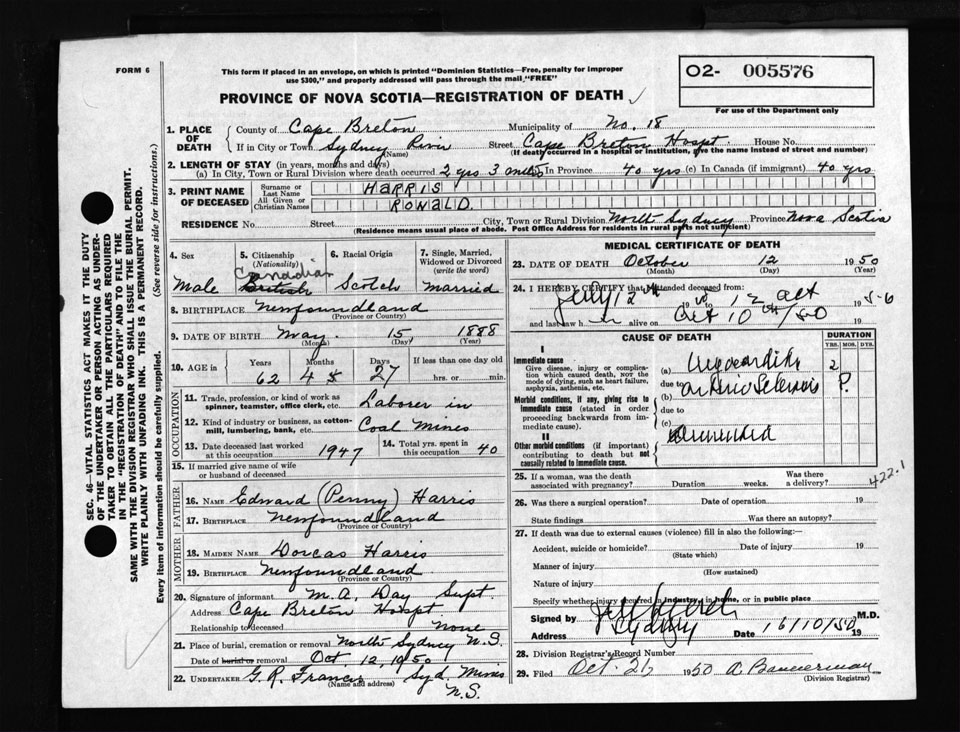 FORM 6
This form if placed in an envelope, on which is printed "Dominion Statistics—Free, penalty for improper
use $300," and properly addressed will pass through the mail "FREE"
02- 005576
For use of the Department only
PROVINCE OF NOVA SCOTIA—REGISTRATION OF DEATH
1. PLACE OF DEATH { County of Cape Breton Municipality of No. 18
If in City or Town Sydney River (Name) Street Cape Breton Hospt. House No.
(If death occurred in a hospital or institution, give the name instead of street and number)
2. LENGTH OF STAY (in years, months and days)
(a) In City, Town or Rural Division where death occurred 2 yrs 3 mths In Province 40 yrs (c) In Canada (if immigrant) 40 yrs
3. PRINT NAME OF DECEASED { Surname or Last Name HARRIS
All Given or Christian Names RONALD.
RESIDENCE No. Street City, Town or Rural Division North Sydney Province Nova Scotia
(Residence means usual place of abode. Post Office Address for residents in rural parts not sufficient)
4. Sex Male
5. Citizenship (Nationality) Canadian British
6. Racial Origin Scotch
7. Single, Married, Widowed or Divorced (write the word) married
8. BIRTHPLACE Newfoundland
(Province or Country)
9. DATE OF BIRTH May 15 1888
(Month) (Day) (Year)
10. AGE in { Years 62 Months 4 Days 27 If less than one day old
hrs. or min.
OCCUPATION
11. Trade, profession, or kind of work as spinner, teamster, office clerk, etc. Laborer in
12. Kind of industry or business, as cotton-mill, lumbering, bank, etc. Coal Mines
13. Date deceased last worked at this occupation 1947
14. Total yrs. spent in this occupation 40
15. If married give name of wife or husband of deceased
FATHER
16. NAME Edward (Penny) Harris
17. BIRTHPLACE Newfoundland
(Province or Country)
MOTHER
18. MAIDEN NAME Dorcas Harris
19. BIRTHPLACE Newfoundland
(Province or Country)
20. Signature of informant M. A. Day Supt.
Address Cape Breton Hospt
Relationship to deceased None
21. Place of burial, cremation or removal North Sydney N.S.
Date of burial or removal Oct 12, 1950
22. UNDERTAKER G. R. Francis Syd. Mines
(Name and address)
N.S.
MEDICAL CERTIFICATE OF DEATH
23. DATE OF DEATH October 12 1950
(Month) (Day) (Year)
24. I HEREBY CERTIFY that I attended deceased from:
July 12th to 12 Oct 195-0
and last saw h alive on Oct 10th/50
CAUSE OF DEATH
DURATION
YRS. MOS. DYS.
I
Immediate cause
Give disease, injury or complication which caused death, not the mode of dying, such as heart failure, asphyxia, asthenia, etc.
(a) Myocarditis 2
due to
(b) P.
Morbid conditions, if any, giving rise to immediate cause (stated in order proceeding backwards from immediate cause).
due to
(c)
II
Other morbid conditions (if important) contributing to death but not causally related to immediate cause.
25. If a woman, was the death associated with pregnancy? Duration weeks. Was there a delivery?
422.1
26. Was there a surgical operation? Date of operation 19
State findings Was there an autopsy?
27. If death was due to external causes (violence) fill in also the following:—
Accident, suicide or homicide? Date of injury 19
(State which)
Manner of injury
(How sustained)
Nature of injury
Specify whether injury occurred in industry, in home, or in public place
Signed by M.D.
Address Sydney Date 16/10/50 19
28. Division Registrar's Record Number
29. Filed Oct. 21, 1950 A Bannerman
(Division Registrar)
SEC. 46—VITAL STATISTICS ACT MAKES IT THE DUTY
OF THE UNDERTAKER OR PERSON ACTING AS UNDERTAKER
TO OBTAIN ALL THE PARTICULARS REQUIRED
IN THE "REGISTRATION OF DEATH" AND TO FILE THE
SAME WITH THE DIVISION REGISTRAR WHO SHALL ISSUE THE BURIAL PERMIT.
WRITE PLAINLY WITH UNFADING INK. THIS IS A PERMANENT RECORD.
Every item of information should be carefully supplied. (See reverse side for instructions.)